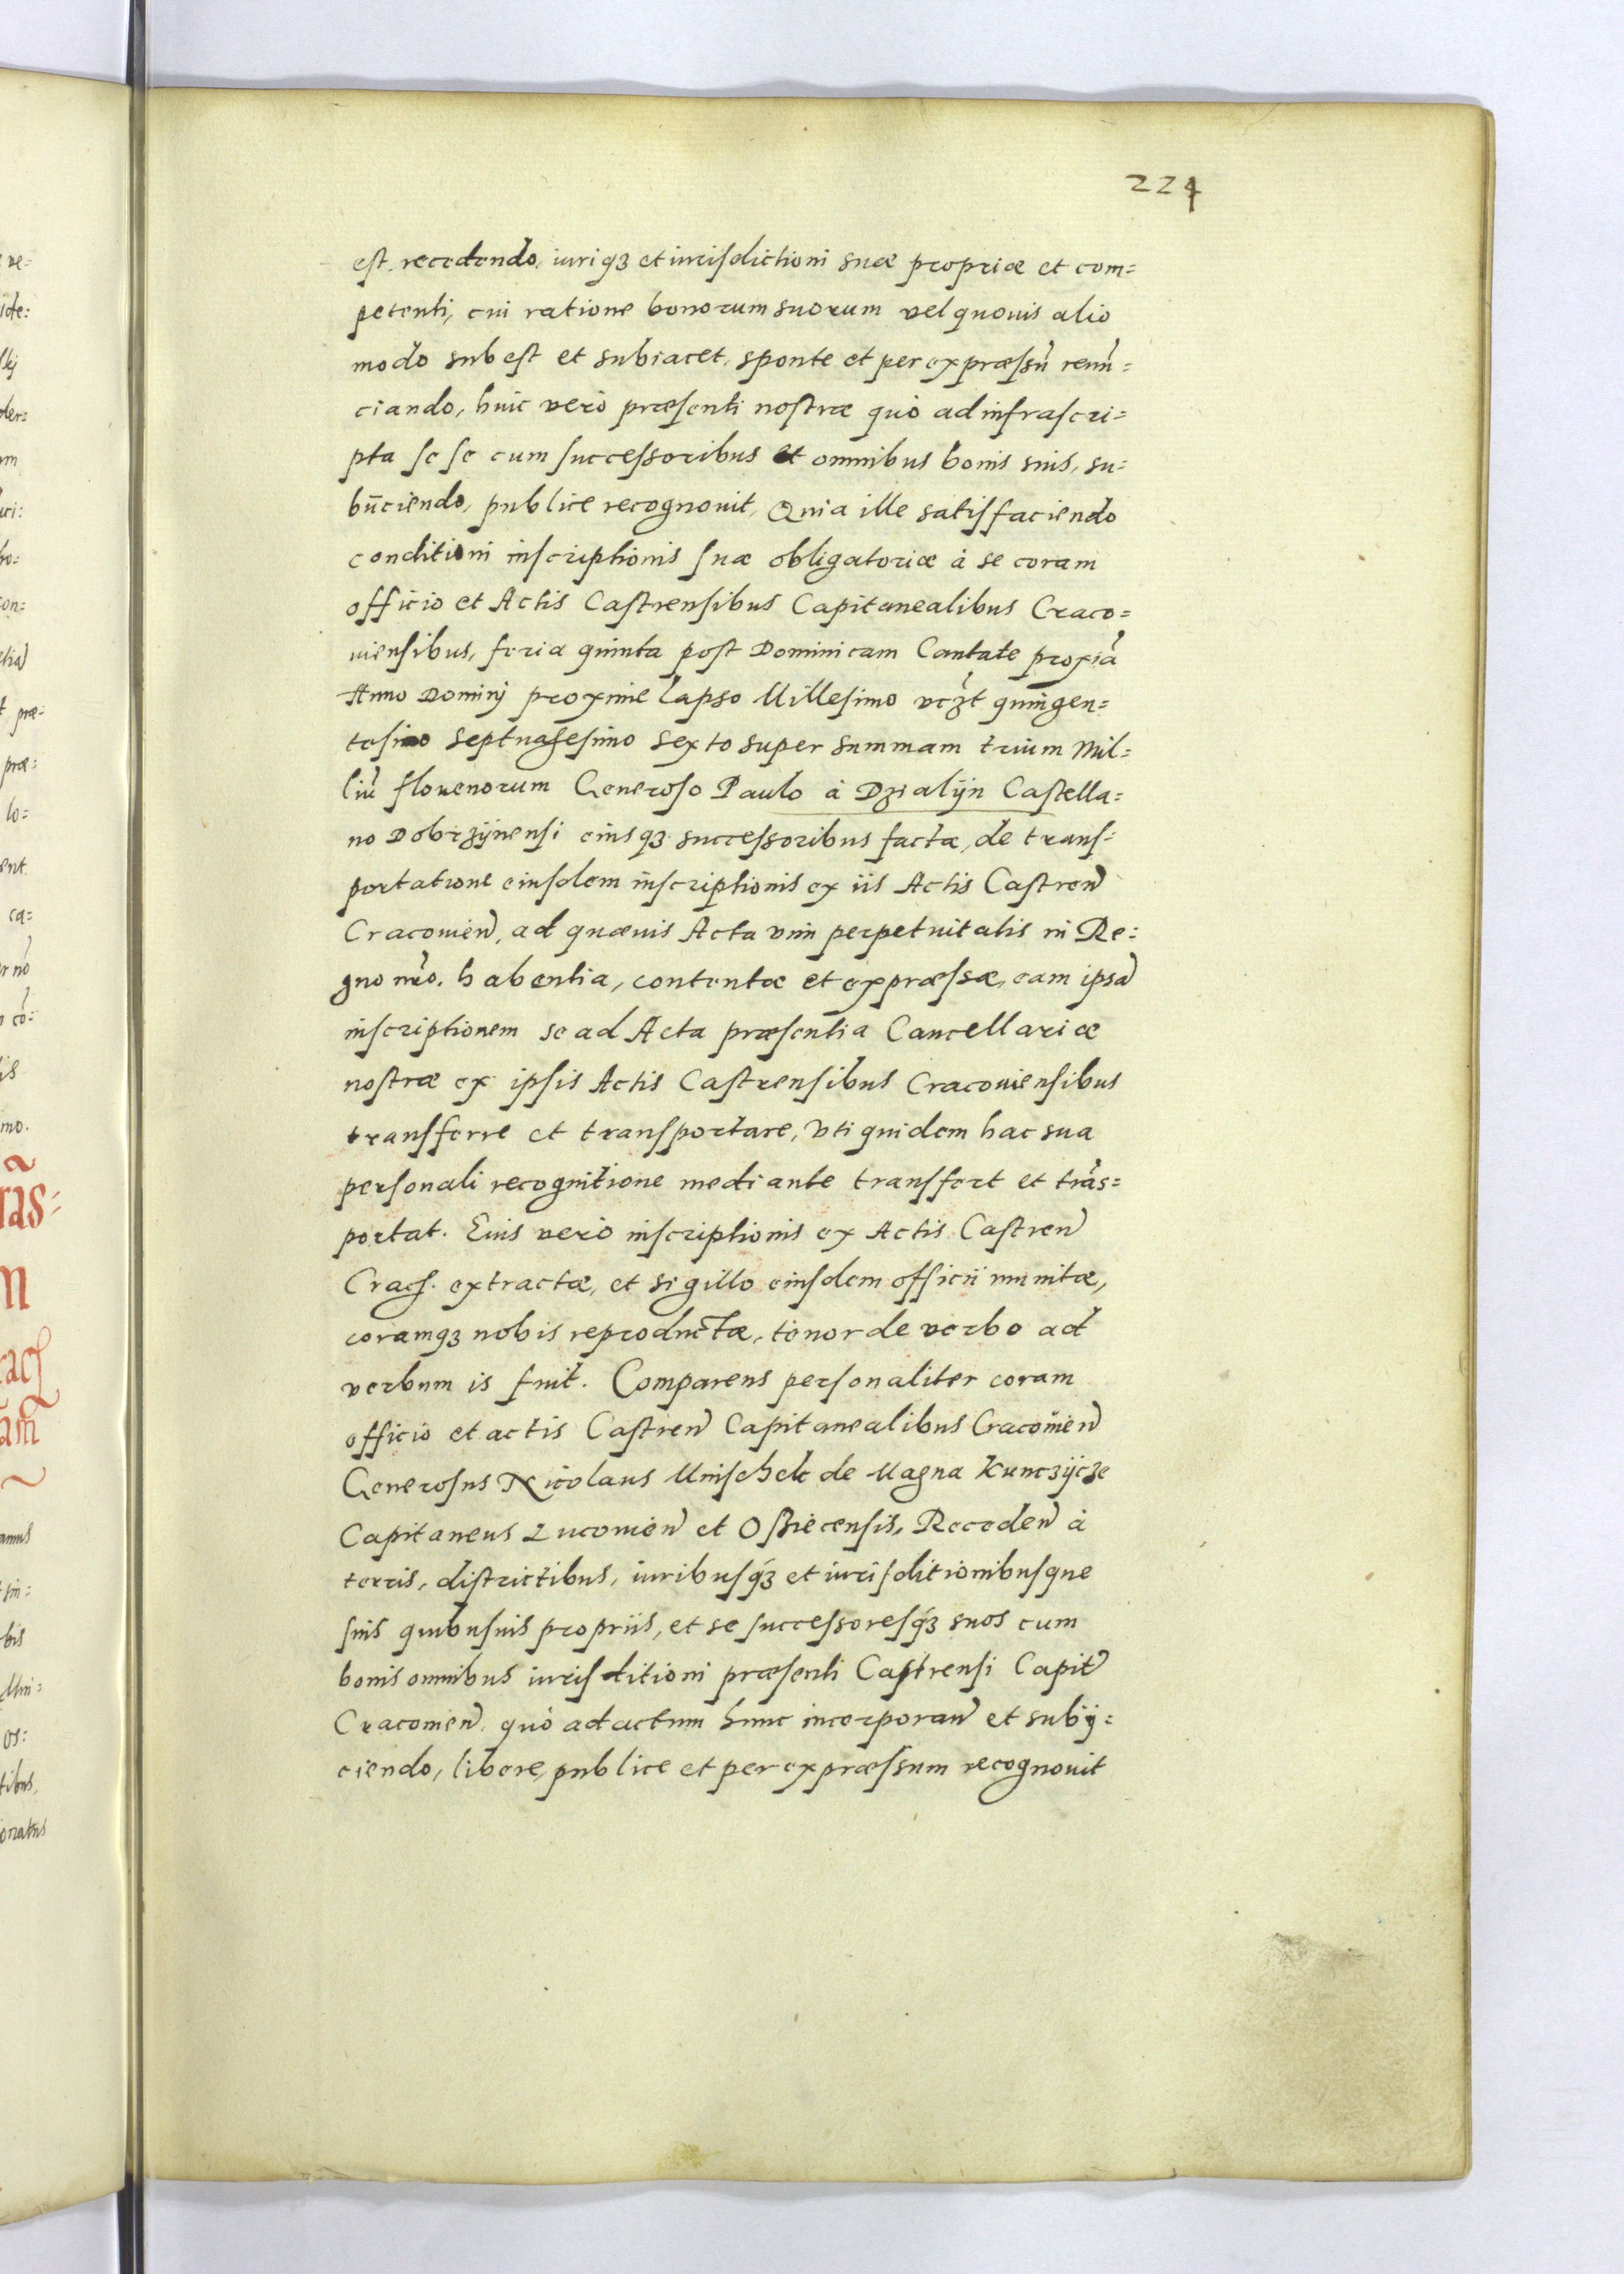 224
est, recedendo, iuriqȝ et iurisdictioni suæ propriæ et com=
petenti, cui ratione bonorum suorum vel quouis alio
modo subest et subiacet, sponte et per expræssũ renũ=
ciando, huic verò præsenti nostræ quò ad infrascri=
pta se se cum successoribus et omnibus bonis suis, su=
bijciendo, publice recognouit, Quia ille satisfaciendo
conditioni inscriptionis suæ obligatoriæ à se coram
officio et Actis Castrensibus Capitanealibus Craco=
uiensibus, feria quinta post Dominicam Cantate proxiã
Anno Dominj proxime lapso Millesimo vcȝt quingen=
tesimo septuagesimo sexto super summam trium Mil=
liũ florenorum Generoso Paulo à Dzialijn Castella=
no Dobrzijnensi eiusqȝ successoribus factæ, de trans=
portatione eiusdem inscriptionis ex iis Actis Castreñ
Cracouieñ, ad quæuis Acta vim perpetuitatis in Re=
gno nr̃o. habentia, contentæ et expræssæ, eam ipsã
inscriptionem se ad Acta præsentia Cancellariæ
nostræ ex ipsis Actis Castrensibus Cracouiensibus
transferre et transportare, vti quidem hac sua
personali recognitione mediante transfert et trãs=
portat. Eius verò inscriptionis ex Actis Castreñ
Cracs. extractæ, et sigillo eiusdem officii munitæ,
coramqȝ nobis reproductæ, tenor de verbo ad
verbum is fuit. Comparens personaliter coram
officio et actis Castreñ Capitanealibus Cracouieñ
Generosus Nicolaus Mnischek de Magna Kunczijcze
Capitaneus Lucouieñ et Osiecensis, Recedeñ à
terris, districtibus, iuribusqȝ et iurisditionibusque
suis quibusuis propriis, et se successoresqȝ suos cum
bonis omnibus iurisditioni præsenti Castrensi Capit̃
Cracouieñ, quò ad actum hunc incorporañ et subij=
ciendo, libere, publice et per expræssum recognouit